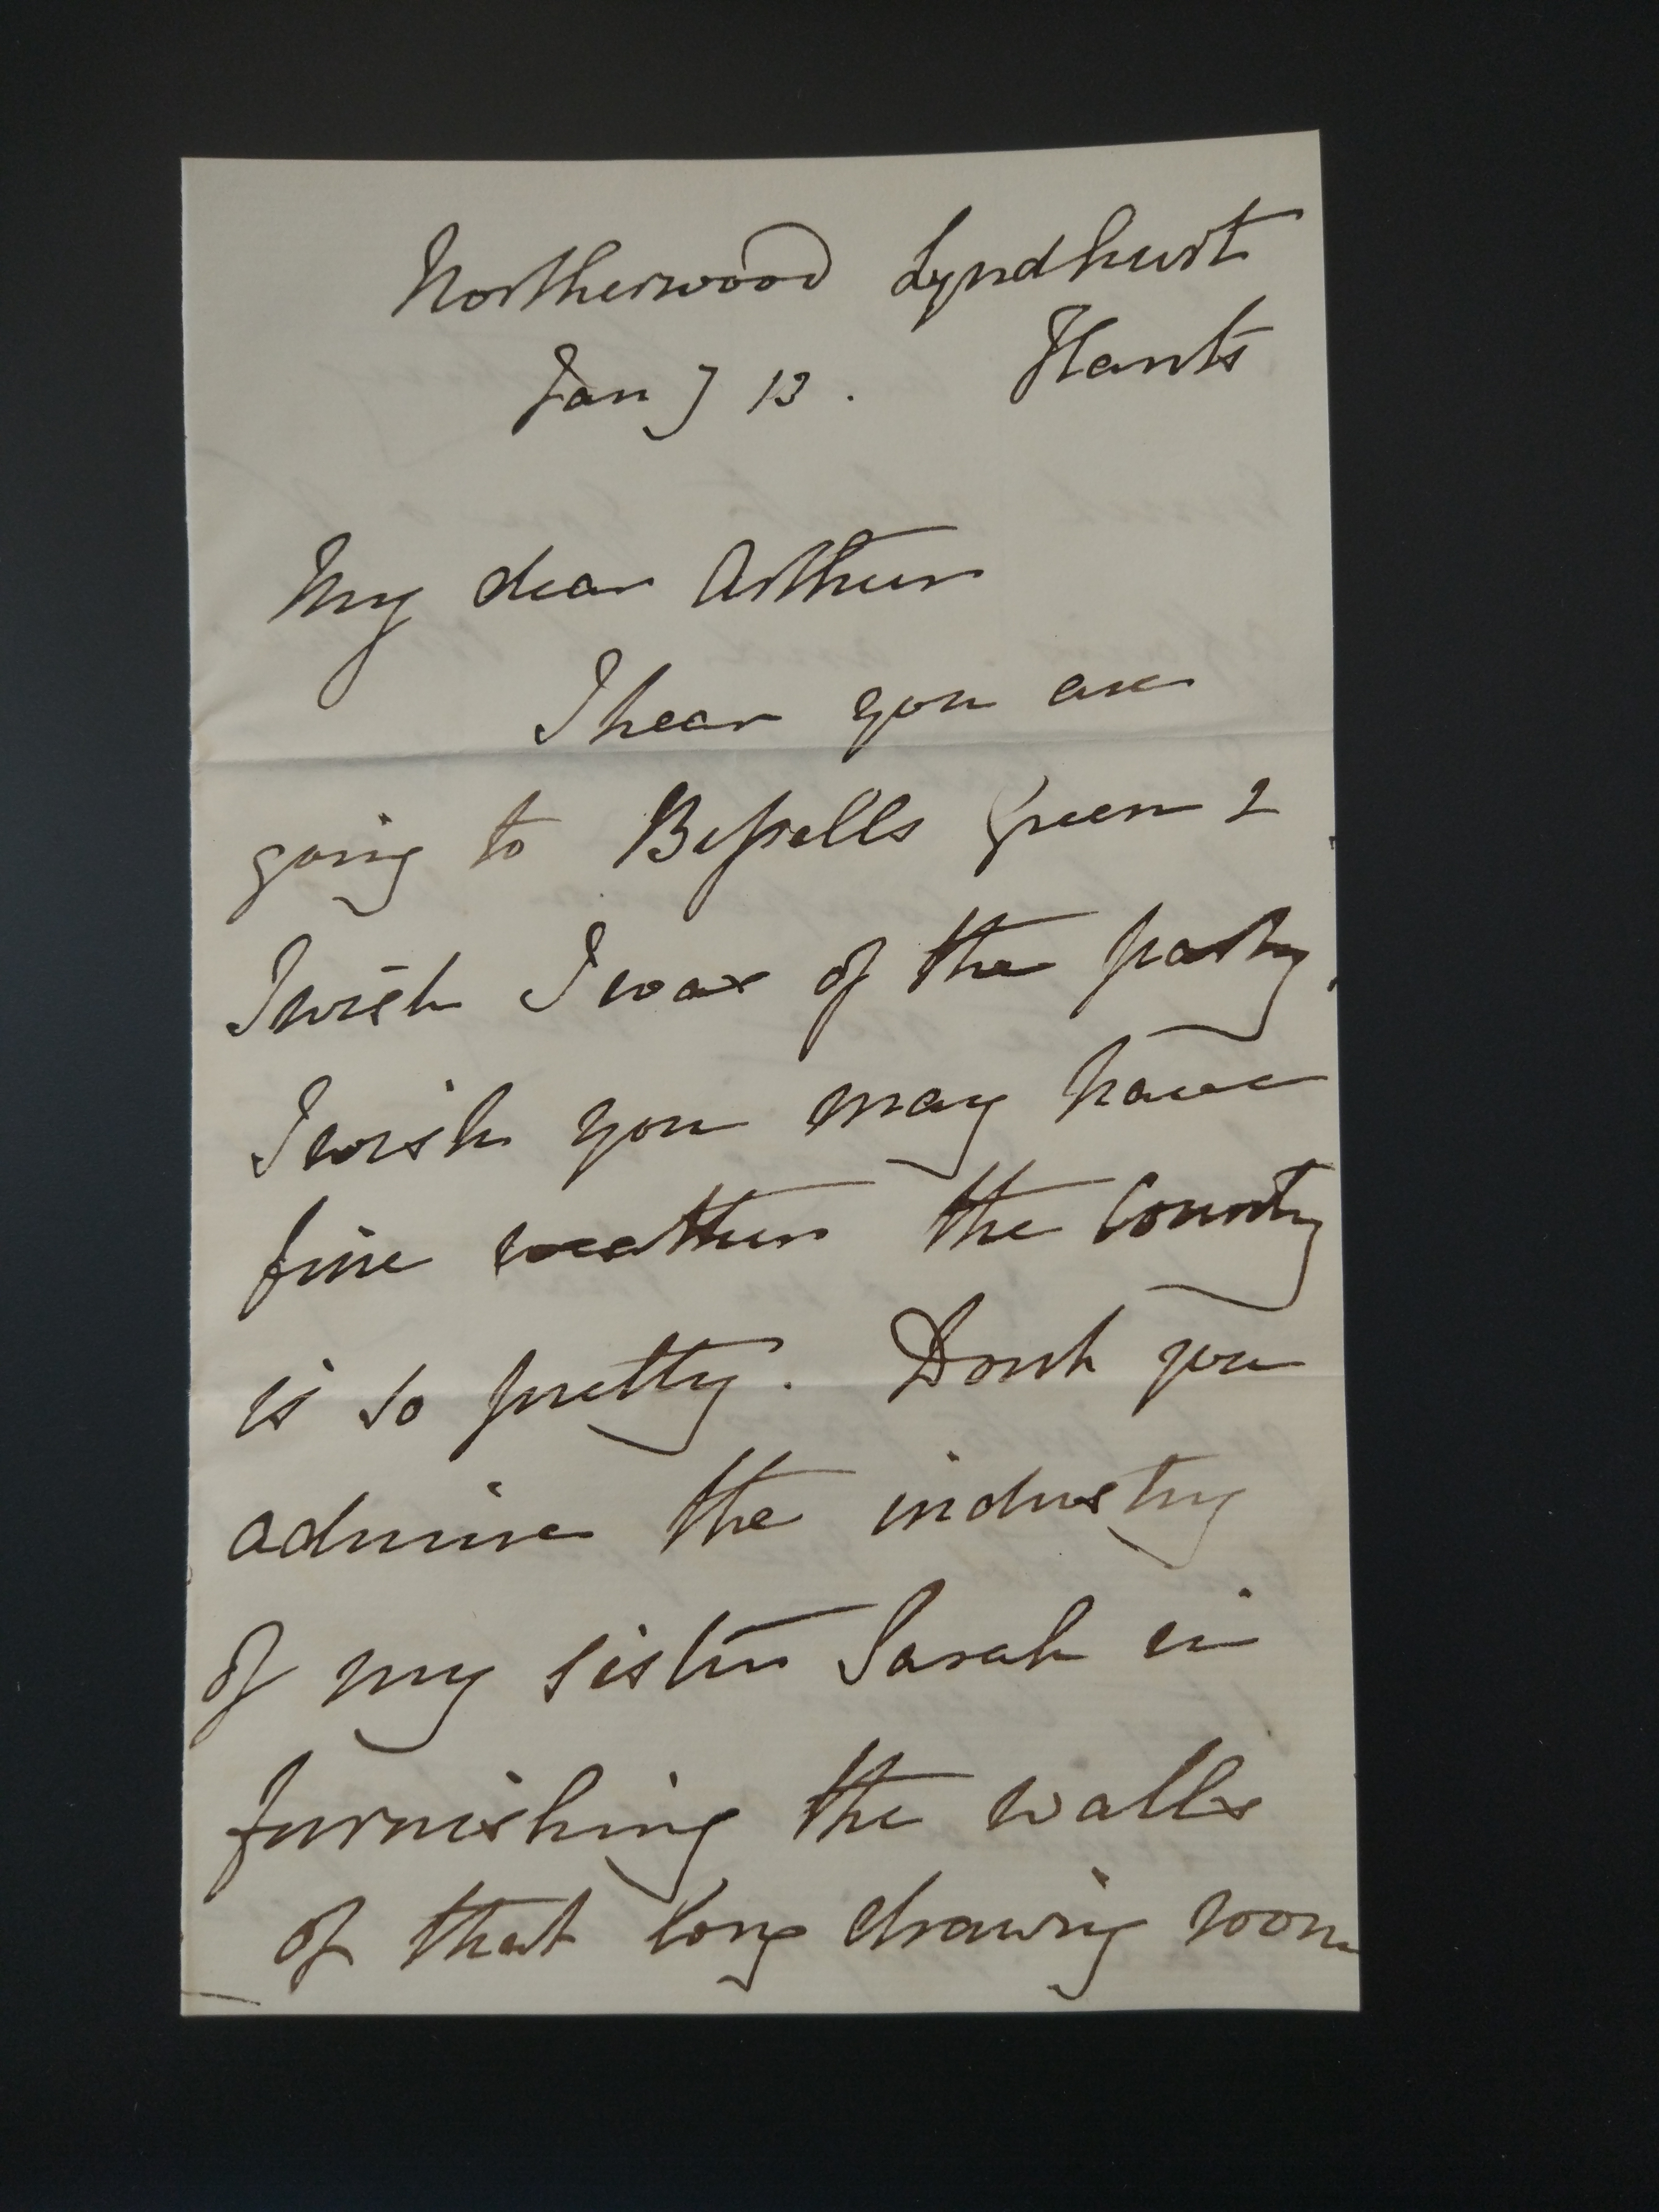 Northerwood Lyndhurst
Jany 13. Hants
My dear Arthur
I hear you are
going to Bessells Green &
I wish I was of the party,
I wish you may have
fine weather the County
is so pretty. Dont you
admire the industry
of my sister Sarah in
furnishing the walls
of that long drawing room